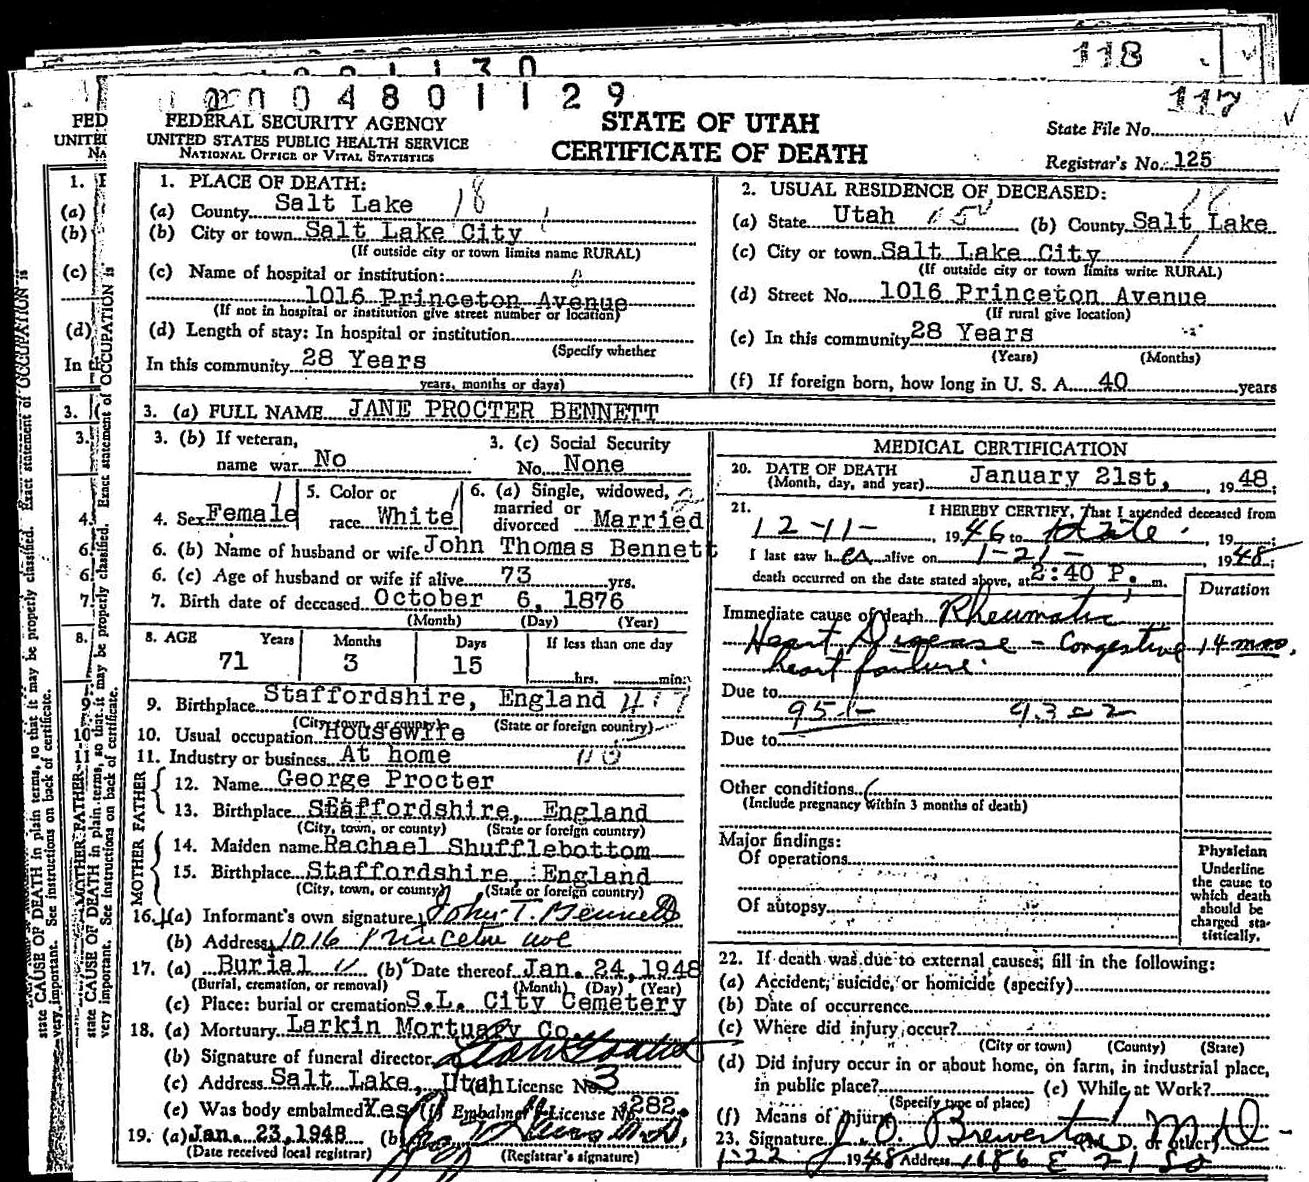 118
004801129
117
FEDERAL SECURITY AGENCY
UNITED STATES PUBLIC HEALTH SERVICE
NATIONAL OFFICE OF VITAL STATISTICS
STATE OF UTAH
CERTIFICATE OF DEATH
State File No.
Registrar's No. 125
1. PLACE OF DEATH:
(a) County Salt Lake 18
(b) City or town Salt Lake City
(If outside city or town limits name RURAL)
(c) Name of hospital or institution:
1016 Princeton Avenue
(If not in hospital or institution give street number or location)
(d) Length of stay: In hospital or institution
(Specify whether
In this community 28 Years
years, months or days)
2. USUAL RESIDENCE OF DECEASED:
(a) State Utah (b) County Salt Lake
(c) City or town Salt Lake City
(If outside city or town limits write RURAL)
(d) Street No. 1016 Princeton Avenue
(If rural give location)
(e) In this community 28 Years
(Years) (Months)
(f) If foreign born, how long in U. S. A. 40 years
3. (a) FULL NAME JANE PROCTER BENNETT
3. (b) If veteran,
name war No
3. (c) Social Security
No. None
4. Sex Female
5. Color or
race White
6. (a) Single, widowed,
married or
divorced Married
6. (b) Name of husband or wife John Thomas Bennett
6. (c) Age of husband or wife if alive 73 yrs.
7. Birth date of deceased October 6, 1876
(Month) (Day) (Year)
8. AGE Years Months Days If less than one day
71 3 15 hrs. min.
9. Birthplace Staffordshire, England
(City, town, or county) (State or foreign country)
10. Usual occupation Housewife
11. Industry or business At home
FATHER
12. Name George Procter
13. Birthplace Staffordshire, England
(City, town, or county) (State or foreign country)
MOTHER
14. Maiden name Rachael Shufflebottom
15. Birthplace Staffordshire, England
(City, town, or county) (State or foreign country)
16. (a) Informant's own signature John T. Bennett
(b) Address 1016 Princeton ave
17. (a) Burial (b) Date thereof Jan. 24, 1948
(Burial, cremation, or removal) (Month) (Day) (Year)
(c) Place: burial or cremation S.L. City Cemetery
18. (a) Mortuary Larkin Mortuary Co.
(b) Signature of funeral director
(c) Address Salt Lake, Utah (d) License No. 3
(e) Was body embalmed Yes (f) Embalmer's License No. 282.
19. (a) Jan. 23, 1948 (b)
(Date received local registrar) (Registrar's signature)
MEDICAL CERTIFICATION
20. DATE OF DEATH
(Month, day, and year) January 21st, 1948;
21. I HEREBY CERTIFY, That I attended deceased from
12-11-, 1946 to date, 19
I last saw her alive on 1-21-, 1948;
death occurred on the date stated above, at 2:40 P. m.
Duration
Immediate cause of death Rheumatic
Heart Disease - Congestive 14 mos.
heart failure.
Due to
Due to
Other conditions
(Include pregnancy within 3 months of death)
Major findings:
Of operations
Of autopsy
Physician
Underline
the cause to
which death
should be
charged sta-
tistically.
22. If death was due to external causes; fill in the following:
(a) Accident, suicide, or homicide (specify)
(b) Date of occurrence
(c) Where did injury occur?
(City or town) (County) (State)
(d) Did injury occur in or about home, on farm, in industrial place,
in public place? (e) While at Work?
(Specify type of place)
(f) Means of Injury
23. Signature J. O. Brewerton M D (M. D. or other)
1-22 1948 Address 1686 E 21 So